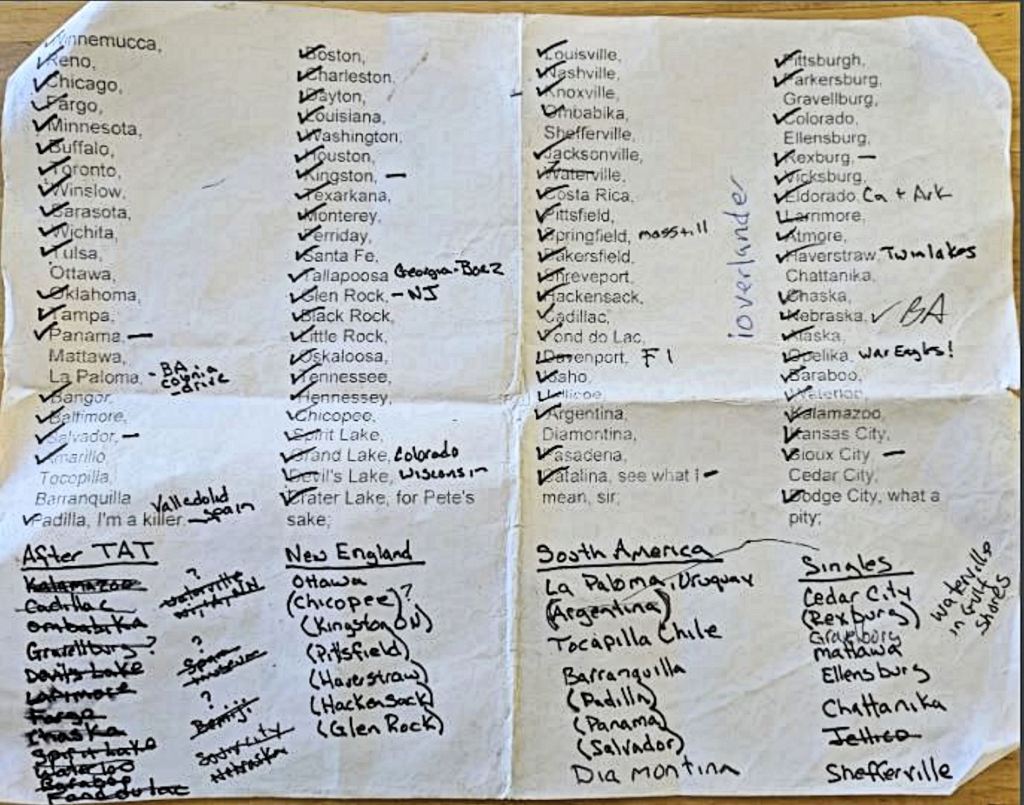 Winnemucca,
Reno,
Chicago,
Fargo,
Minnesota,
Buffalo,
Toronto,
Winslow,
Sarasota,
Wichita,
Tulsa,
Ottawa,
Oklahoma,
Tampa,
Panama, —
Mattawa,
La Paloma, - BA
colonia
-drive
Bangor,
Baltimore,
Salvador, —
Amarillo,
Tocopilla,
Barranquilla
Padilla, I'm a killer.
Valledolid
- Spain
Boston,
Charleston,
Dayton,
Louisiana,
Washington,
Houston,
Kingston, —
Texarkana,
Monterey,
Ferriday,
Santa Fe,
Tallapoosa Georgia-Boaz
Glen Rock, - NJ
Black Rock,
Little Rock,
Oskaloosa,
Tennessee,
Hennessey,
Chicopee,
Spirit Lake,
Grand Lake, Colorado
Devil's Lake, Wisconsin
Crater Lake, for Pete's
sake;
Louisville,
Nashville,
Knoxville,
Ombabika,
Shefferville,
Jacksonville,
Waterville,
Costa Rica,
Pittsfield,
Springfield, mass + ill
Bakersfield,
Shreveport,
Hackensack,
Cadillac,
Fond du Lac,
Davenport, Fl
Idaho,
Jellicoe,
Argentina,
Diamontina,
Pasadena,
Catalina, see what I —
mean, sir;
ioverlander
Pittsburgh,
Parkersburg,
Gravellburg,
Colorado,
Ellensburg,
Rexburg, —
Vicksburg,
Eldorado, Ca + Ark
Larrimore,
Atmore,
Haverstraw, Twin lakes
Chattanika,
Chaska,
Nebraska, ✓ BA
Alaska,
Opelika, War Eagles!
Baraboo,
Waterloo,
Kalamazoo,
Kansas City,
Sioux City, —
Cedar City,
Dodge City, what a
pity;
After TAT
Kalamazoo
Cadillac
Ombabika
Gravellburg?
Devils Lake
Larimore
Fargo
Chaska
Spirit Lake
Waterloo
Baraboo
Fond du lac
?
Waterville
?
Spam
museum
?
Bemiji
Sooix City
Nebraska
New England
Ottawa
(Chicopee)?
(Kingston ON)
(Pittsfield)
(Haverstraw)
(Hackensack)
(Glen Rock)
South America
La Paloma, Uruguay
(Argentina)
Tocapilla Chile
Barranquilla
(Padilla)
(Panama)
(Salvador)
Diamontina
Singles
Cedar City
(Rexburg)
Gravelburg
Mattawa
Ellensburg
Chattanika
Jellico
Shefferville
Waterville
in Gulf
Shores